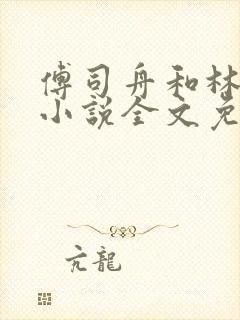 傅司舟和林
小説全文免
亢龍